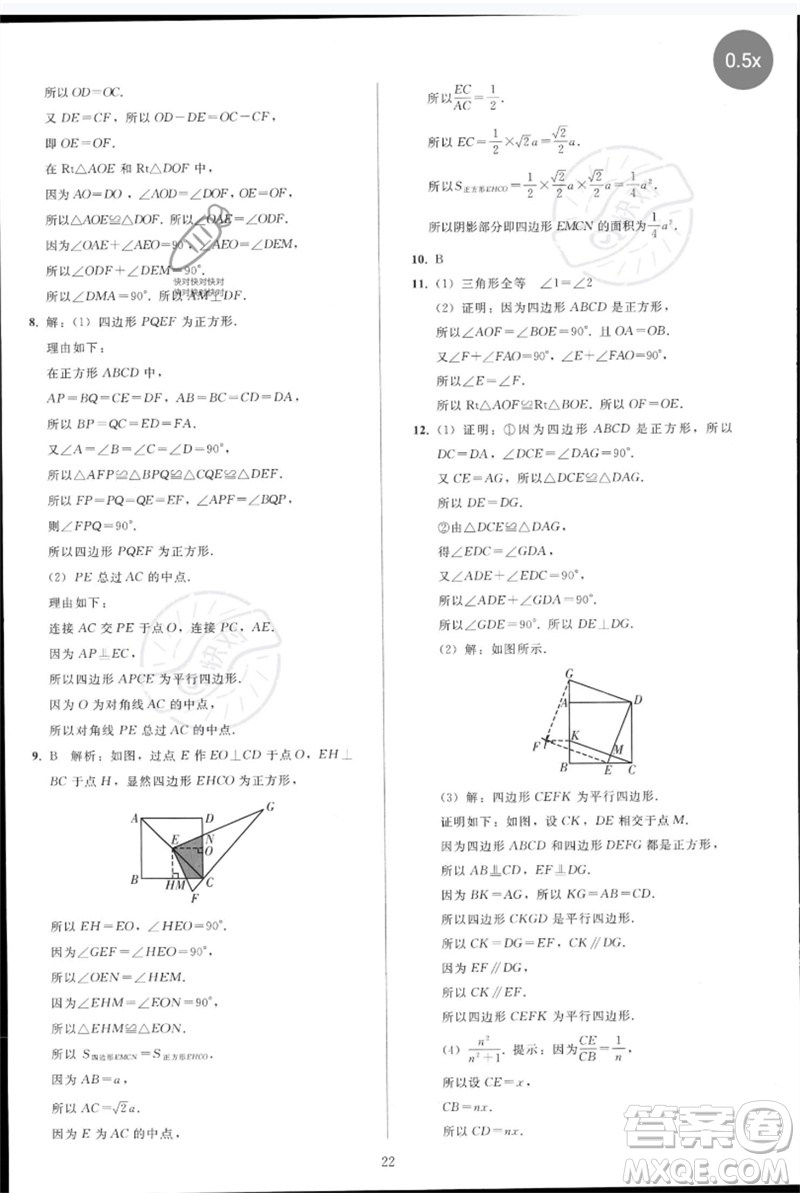 0.5x
所以 OD=OC.
又 DE=CF，所以 OD-DE=OC-CF，
即 OE=OF.
在 Rt△AOE 和 Rt△DOF 中，
因为 AO=DO，∠AOD=∠DOF，OE=OF，
所以△AOE≌△DOF. 所以∠OAE=∠ODF.
因为∠OAE+∠AEO=90°，∠AEO=∠DEM，
所以∠ODF+∠DEM=90°.
所以∠DMA=90°. 所以 AM⊥DF.
快对快对快对
快对快对快对
8. 解：(1) 四边形 PQEF 为正方形.
理由如下：
在正方形 ABCD 中，
AP=BQ=CE=DF，AB=BC=CD=DA，
所以 BP=QC=ED=FA.
又∠A=∠B=∠C=∠D=90°，
所以△AFP≌△BPQ≌△CQE≌△DEF.
所以 FP=PQ=QE=EF，∠APF=∠BQP，
则∠FPQ=90°.
所以四边形 PQEF 为正方形.
(2) PE 总过 AC 的中点.
理由如下：
连接 AC 交 PE 于点 O，连接 PC，AE.
因为 AP⫫EC，
所以四边形 APCE 为平行四边形.
因为 O 为对角线 AC 的中点，
所以对角线 PE 总过 AC 的中点.
9. B 解析：如图，过点 E 作 EO⊥CD 于点 O，EH⊥
BC 于点 H，显然四边形 EHCO 为正方形，
A D G
E N
O
B H M C
F
所以 EH=EO，∠HEO=90°.
因为∠GEF=∠HEO=90°，
所以∠OEN=∠HEM.
因为∠EHM=∠EON=90°，
所以△EHM≌△EON.
所以 S四边形EMCN=S正方形EHCO.
因为 AB=a，
所以 AC=√2a.
因为 E 为 AC 的中点，
所以 EC/AC=1/2.
所以 EC=1/2×√2a=√2/2a.
所以 S正方形EHCO=√2/2a×√2/2a=1/4a².
所以阴影部分即四边形 EMCN 的面积为1/4a².
10. B
11. (1) 三角形全等 ∠1=∠2
(2) 证明：因为四边形 ABCD 是正方形，
所以∠AOF=∠BOE=90°. 且 OA=OB.
又∠F+∠FAO=90°，∠E+∠FAO=90°，
所以∠E=∠F.
所以 Rt△AOF≌Rt△BOE. 所以 OF=OE.
12. (1) 证明：①因为四边形 ABCD 是正方形，所以
DC=DA，∠DCE=∠DAG=90°.
又 CE=AG，所以△DCE≌△DAG.
所以 DE=DG.
②由△DCE≌△DAG，
得∠EDC=∠GDA，
又∠ADE+∠EDC=90°，
所以∠ADE+∠GDA=90°.
所以∠GDE=90°. 所以 DE⊥DG.
(2) 解：如图所示.
G
A D
F K M
B E C
(3) 解：四边形 CEFK 为平行四边形.
证明如下：如图，设 CK，DE 相交于点 M.
因为四边形 ABCD 和四边形 DEFG 都是正方形，
所以 AB⫫CD，EF⫫DG.
因为 BK=AG，所以 KG=AB=CD.
所以四边形 CKGD 是平行四边形.
所以 CK=DG=EF，CK∥DG.
因为 EF∥DG，
所以 CK∥EF.
所以四边形 CEFK 为平行四边形.
(4) n²/n²+1. 提示：因为CE/CB=1/n，
所以设 CE=x，
CB=nx.
所以 CD=nx.
22
答案卷
MXQE.COM